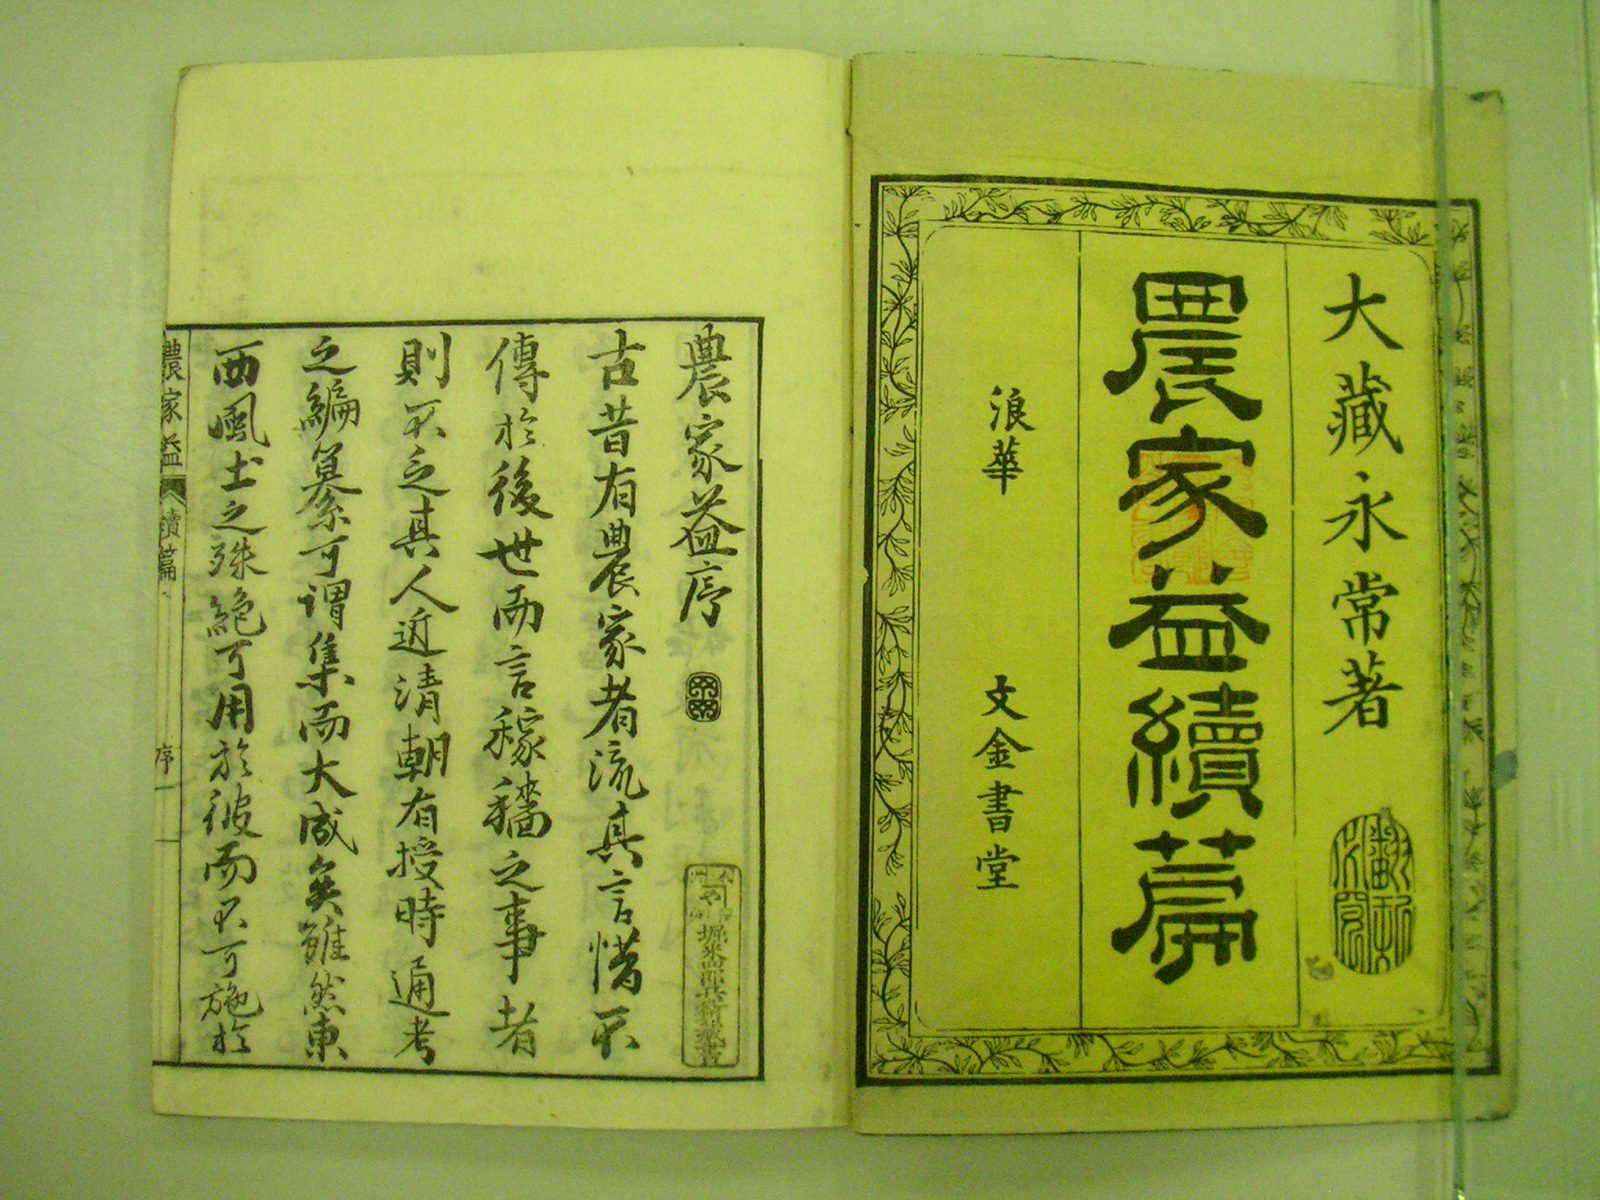 大藏永常著
農家益續篇
浪華 文金書堂
農家益序
古昔有農家者流其言惜不
傳於後世而言稼穡之事者
則不乏其人近清朝有授時通考
之編纂可謂集而大成矣雖然東
西風土之殊絶可用於彼而不可施於
農家益 續篇 序 一